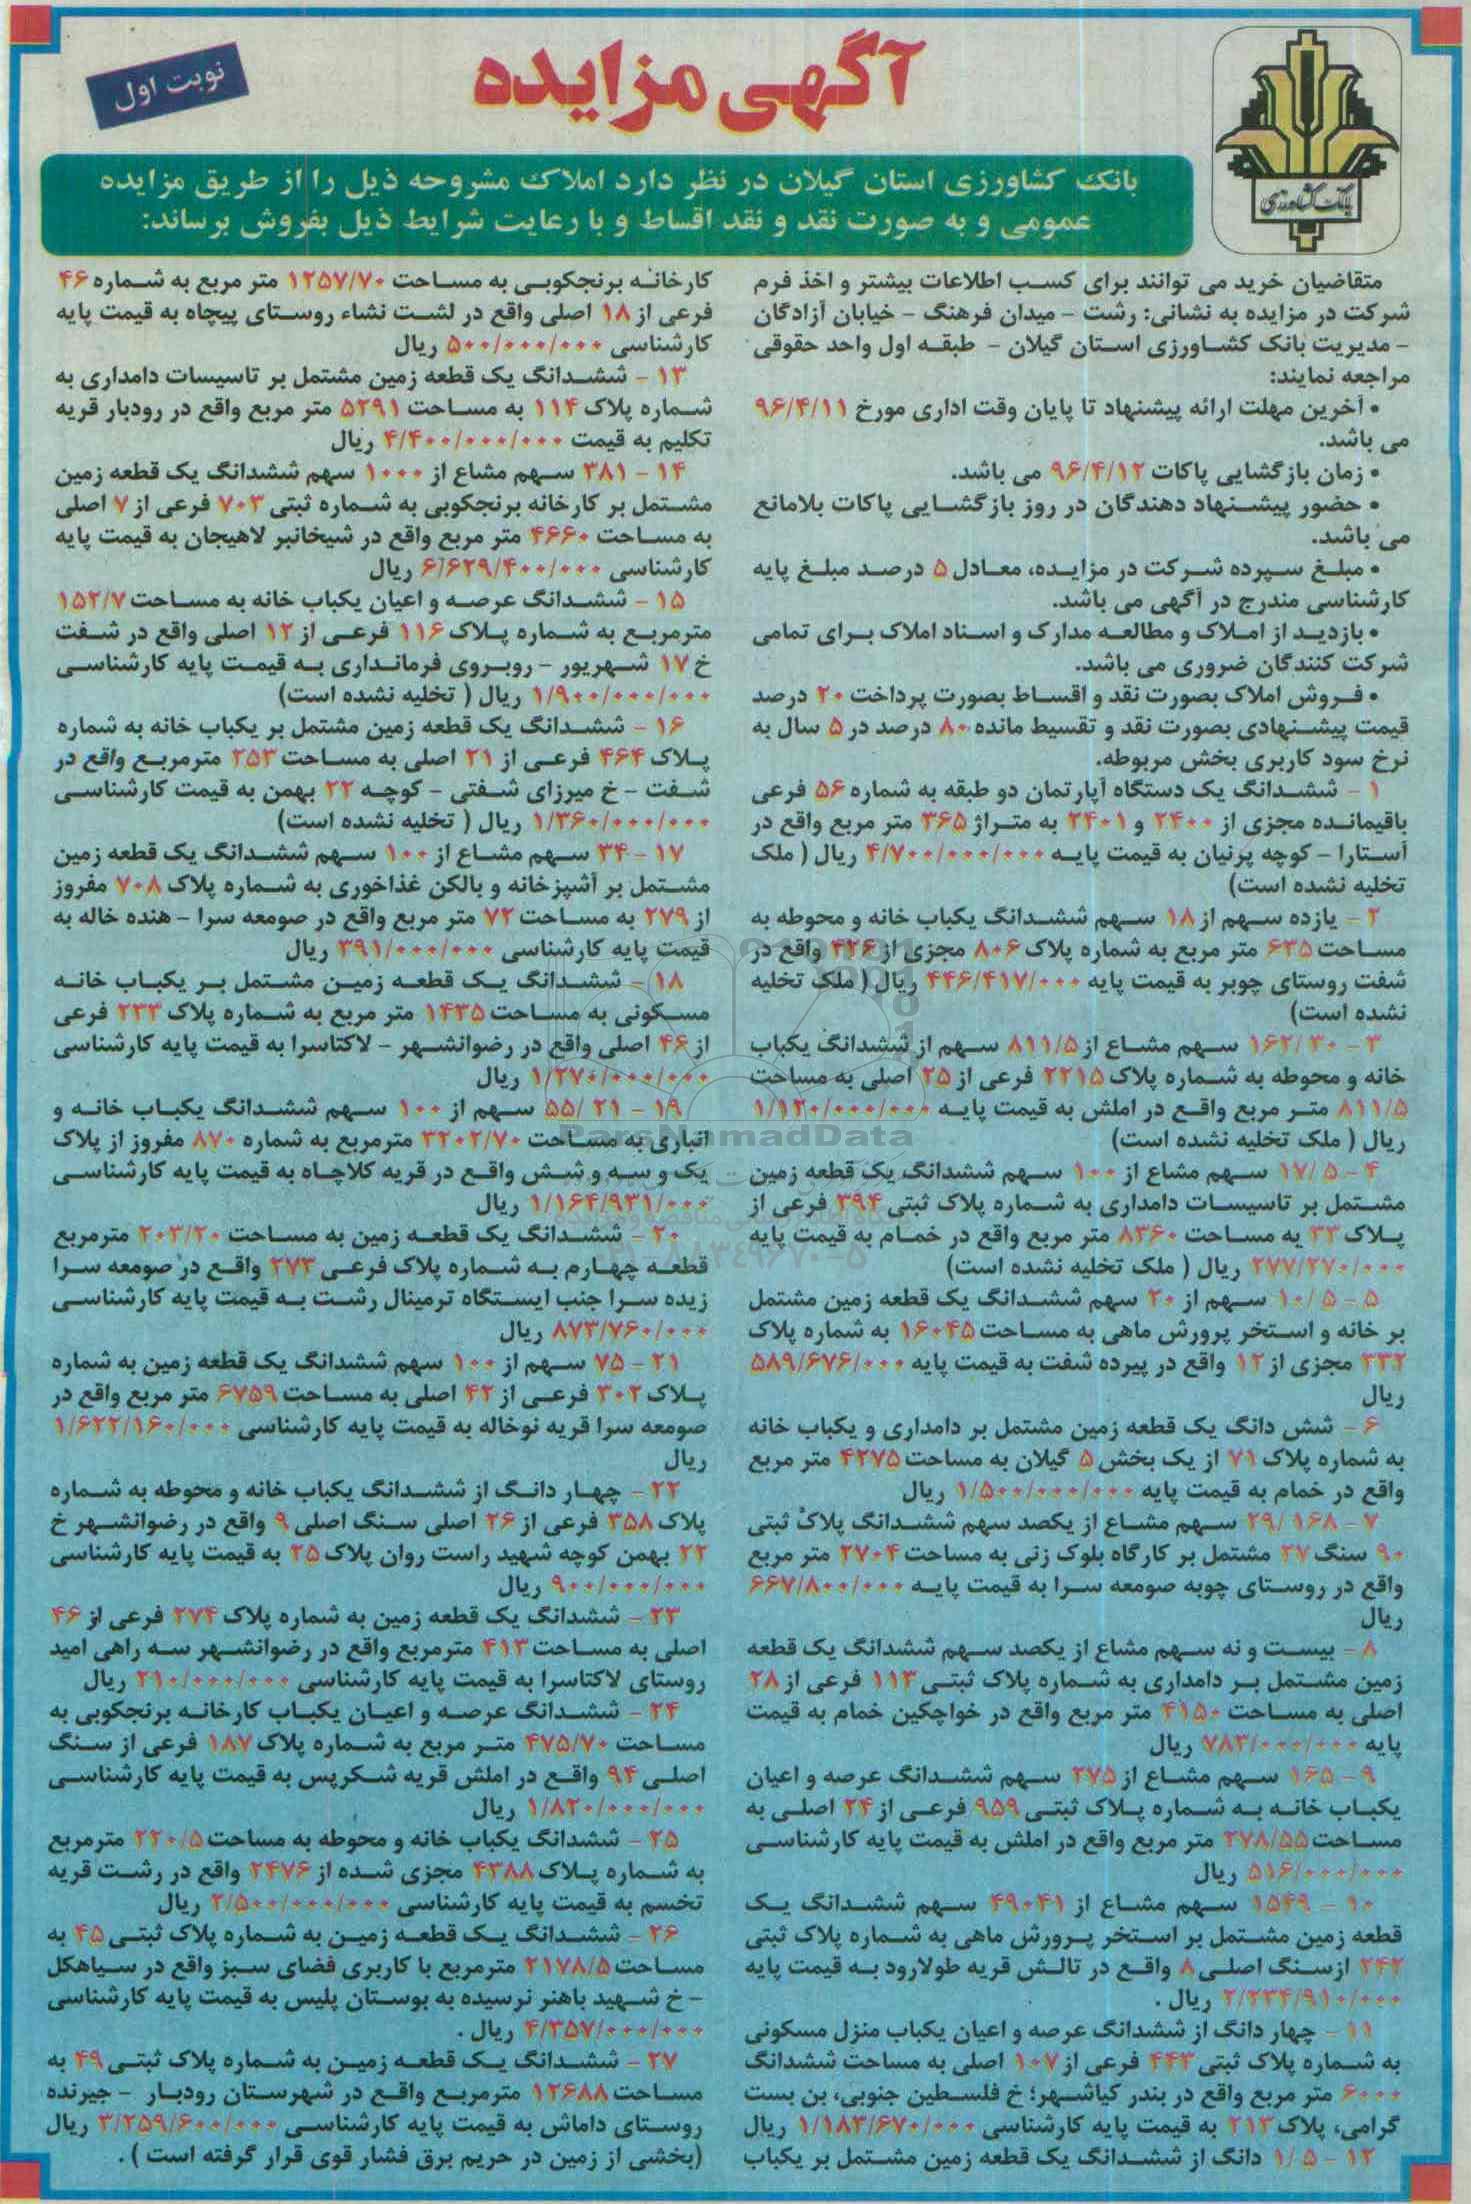 آگهی مزایده
نوبت اول
بانک کشاورزی
بانک کشاورزی استان گیلان در نظر دارد املاک مشروحه ذیل را از طریق مزایده
عمومی و به صورت نقد و نقد اقساط و با رعایت شرایط ذیل بفروش برساند:
متقاضیان خرید می توانند برای کسب اطلاعات بیشتر و اخذ فرم
شرکت در مزایده به نشانی: رشت - میدان فرهنگ - خیابان آزادگان
- مدیریت بانک کشاورزی استان گیلان - طبقه اول واحد حقوقی
مراجعه نمایند:
• آخرین مهلت ارائه پیشنهاد تا پایان وقت اداری مورخ ۹۶/۴/۱۱
می باشد.
• زمان بازگشایی پاکات ۹۶/۴/۱۲ می باشد.
• حضور پیشنهاد دهندگان در روز بازگشایی پاکات بلامانع
می باشد.
• مبلغ سپرده شرکت در مزایده، معادل ۵ درصد مبلغ پایه
کارشناسی مندرج در آگهی می باشد.
• بازدید از املاک و مطالعه مدارک و اسناد املاک برای تمامی
شرکت کنندگان ضروری می باشد.
• فروش املاک بصورت نقد و اقساط بصورت پرداخت ۲۰ درصد
قیمت پیشنهادی بصورت نقد و تقسیط مانده ۸۰ درصد در ۵ سال به
نرخ سود کاربری بخش مربوطه.
۱ - ششدانگ یک دستگاه آپارتمان دو طبقه به شماره ۵۶ فرعی
باقیمانده مجزی از ۲۴۰۰ و ۲۴۰۱ به متراژ ۳۶۵ متر مربع واقع در
آستارا - کوچه پرنیان به قیمت پایه ۴/۷۰۰/۰۰۰/۰۰۰ ریال ( ملک
تخلیه نشده است)
۲ - یازده سهم از ۱۸ سهم ششدانگ یکباب خانه و محوطه به
مساحت ۶۳۵ متر مربع به شماره پلاک ۸۰۶ مجزی از ۳۲۶ واقع در
شفت روستای چوبر به قیمت پایه ۴۴۶/۴۱۷/۰۰۰ ریال ( ملک تخلیه
نشده است)
۳ - ۱۶۲/۳۰ سهم مشاع از ۸۱۱/۵ سهم از ششدانگ یکباب
خانه و محوطه به شماره پلاک ۲۲۱۵ فرعی از ۲۵ اصلی به مساحت
۸۱۱/۵ متر مربع واقع در املش به قیمت پایه ۱/۱۲۰/۰۰۰/۰۰۰
ریال ( ملک تخلیه نشده است)
۴ - ۱۷/۵ سهم مشاع از ۱۰۰ سهم ششدانگ یک قطعه زمین
مشتمل بر تاسیسات دامداری به شماره پلاک ثبتی ۳۹۴ فرعی از
پلاک ۳۳ به مساحت ۸۳۶۰ متر مربع واقع در خمام به قیمت پایه
۲۷۷/۲۷۰/۰۰۰ ریال ( ملک تخلیه نشده است)
۵ - ۱۰/۵ سهم از ۲۰ سهم ششدانگ یک قطعه زمین مشتمل
بر خانه و استخر پرورش ماهی به مساحت ۱۶۰۴۵ به شماره پلاک
۳۳۲ مجزی از ۱۲ واقع در پیرده شفت به قیمت پایه ۵۸۹/۶۷۶/۰۰۰
ریال
۶ - شش دانگ یک قطعه زمین مشتمل بر دامداری و یکباب خانه
به شماره پلاک ۷۱ از یک بخش ۵ گیلان به مساحت ۴۲۷۵ متر مربع
واقع در خمام به قیمت پایه ۱/۵۰۰/۰۰۰/۰۰۰ ریال
۷ - ۲۹/۱۶۸ سهم مشاع از یکصد سهم ششدانگ پلاک ثبتی
۹۰ سنگ ۲۷ مشتمل بر کارگاه بلوک زنی به مساحت ۲۷۰۴ متر مربع
واقع در روستای چوبه صومعه سرا به قیمت پایه ۶۶۷/۸۰۰/۰۰۰
ریال
۸ - بیست و نه سهم مشاع از یکصد سهم ششدانگ یک قطعه
زمین مشتمل بر دامداری به شماره پلاک ثبتی ۱۱۳ فرعی از ۲۸
اصلی به مساحت ۴۱۵۰ متر مربع واقع در خواچکین خمام به قیمت
پایه ۷۸۳/۰۰۰/۰۰۰ ریال
۹ - ۱۶۵ سهم مشاع از ۲۷۵ سهم ششدانگ عرصه و اعیان
یکباب خانه به شماره پلاک ثبتی ۹۵۹ فرعی از ۲۴ اصلی به
مساحت ۲۷۸/۵۵ متر مربع واقع در املش به قیمت پایه کارشناسی
۵۱۶/۰۰۰/۰۰۰ ریال
۱۰ - ۱۵۴۹ سهم مشاع از ۴۹۰۴۱ سهم ششدانگ یک
قطعه زمین مشتمل بر استخر پرورش ماهی به شماره پلاک ثبتی
۲۴۲ ازسنگ اصلی ۸ واقع در تالش قریه طولارود به قیمت پایه
۲/۲۳۴/۹۱۰/۰۰۰ ریال .
۱۱ - چهار دانگ از ششدانگ عرصه و اعیان یکباب منزل مسکونی
به شماره پلاک ثبتی ۴۴۳ فرعی از ۱۰۷ اصلی به مساحت ششدانگ
۶۰۰۰ متر مربع واقع در بندر کیاشهر؛ خ فلسطین جنوبی، بن بست
گرامی، پلاک ۲۱۳ به قیمت پایه کارشناسی ۱/۱۸۳/۶۷۰/۰۰۰ ریال
۱۲ - ۱/۵ دانگ از ششدانگ یک قطعه زمین مشتمل بر یکباب
کارخانه برنجکوبی به مساحت ۱۲۵۷/۷۰ متر مربع به شماره ۴۶
فرعی از ۱۸ اصلی واقع در لشت نشاء روستای پیچاه به قیمت پایه
کارشناسی ۵۰۰/۰۰۰/۰۰۰ ریال
۱۳ - ششدانگ یک قطعه زمین مشتمل بر تاسیسات دامداری به
شماره پلاک ۱۱۴ به مساحت ۵۲۹۱ متر مربع واقع در رودبار قریه
تکلیم به قیمت ۴/۴۰۰/۰۰۰/۰۰۰ ریال
۱۴ - ۳۸۱ سهم مشاع از ۱۰۰۰ سهم ششدانگ یک قطعه زمین
مشتمل بر کارخانه برنجکوبی به شماره ثبتی ۷۰۳ فرعی از ۷ اصلی
به مساحت ۴۶۶۰ متر مربع واقع در شیخانبر لاهیجان به قیمت پایه
کارشناسی ۶/۶۲۹/۴۰۰/۰۰۰ ریال
۱۵ - ششدانگ عرصه و اعیان یکباب خانه به مساحت ۱۵۲/۷
مترمربع به شماره پلاک ۱۱۶ فرعی از ۱۲ اصلی واقع در شفت
خ ۱۷ شهریور - روبروی فرمانداری به قیمت پایه کارشناسی
۱/۹۰۰/۰۰۰/۰۰۰ ریال ( تخلیه نشده است)
۱۶ - ششدانگ یک قطعه زمین مشتمل بر یکباب خانه به شماره
پلاک ۴۶۴ فرعی از ۲۱ اصلی به مساحت ۲۵۳ مترمربع واقع در
شفت - خ میرزای شفتی - کوچه ۲۲ بهمن به قیمت کارشناسی
۱/۳۶۰/۰۰۰/۰۰۰ ریال ( تخلیه نشده است)
۱۷ - ۳۴ سهم مشاع از ۱۰۰ سهم ششدانگ یک قطعه زمین
مشتمل بر آشپزخانه و بالکن غذاخوری به شماره پلاک ۷۰۸ مفروز
از ۲۷۹ به مساحت ۷۲ متر مربع واقع در صومعه سرا - هنده خاله به
قیمت پایه کارشناسی ۳۹۱/۰۰۰/۰۰۰ ریال
۱۸ - ششدانگ یک قطعه زمین مشتمل بر یکباب خانه
مسکونی به مساحت ۱۴۳۵ متر مربع به شماره پلاک ۲۳۳ فرعی
از ۴۶ اصلی واقع در رضوانشهر - لاکتاسرا به قیمت پایه کارشناسی
۱/۲۷۰/۰۰۰/۰۰۰ ریال
۱۹ - ۵۵/۲۱ سهم از ۱۰۰ سهم ششدانگ یکباب خانه و
انباری به مساحت ۳۲۰۲/۷۰ مترمربع به شماره ۸۷۰ مفروز از پلاک
یک و سه و شش واقع در قریه کلاچاه به قیمت پایه کارشناسی
۱/۱۶۴/۹۳۱/۰۰۰ ریال
۲۰ - ششدانگ یک قطعه زمین به مساحت ۲۰۳/۲۰ مترمربع
قطعه چهارم به شماره پلاک فرعی ۲۷۳ واقع در صومعه سرا
زیده سرا جنب ایستگاه ترمینال رشت به قیمت پایه کارشناسی
۸۷۳/۷۶۰/۰۰۰ ریال
۲۱ - ۷۵ سهم از ۱۰۰ سهم ششدانگ یک قطعه زمین به شماره
پلاک ۳۰۲ فرعی از ۴۲ اصلی به مساحت ۶۷۵۹ متر مربع واقع در
صومعه سرا قریه نوخاله به قیمت پایه کارشناسی ۱/۶۲۲/۱۶۰/۰۰۰
ریال
۲۲ - چهار دانگ از ششدانگ یکباب خانه و محوطه به شماره
پلاک ۳۵۸ فرعی از ۲۶ اصلی سنگ اصلی ۹ واقع در رضوانشهر خ
۲۲ بهمن کوچه شهید راست روان پلاک ۲۵ به قیمت پایه کارشناسی
۹۰۰/۰۰۰/۰۰۰ ریال
۲۳ - ششدانگ یک قطعه زمین به شماره پلاک ۲۷۴ فرعی از ۴۶
اصلی به مساحت ۴۱۳ مترمربع واقع در رضوانشهر سه راهی امید
روستای لاکتاسرا به قیمت پایه کارشناسی ۲۱۰/۰۰۰/۰۰۰ ریال
۲۴ - ششدانگ عرصه و اعیان یکباب کارخانه برنجکوبی به
مساحت ۴۷۵/۷۰ متر مربع به شماره پلاک ۱۸۷ فرعی از سنگ
اصلی ۹۴ واقع در املش قریه شکرپس به قیمت پایه کارشناسی
۱/۸۲۰/۰۰۰/۰۰۰ ریال
۲۵ - ششدانگ یکباب خانه و محوطه به مساحت ۲۲۰/۵ مترمربع
به شماره پلاک ۴۳۸۸ مجزی شده از ۲۴۷۶ واقع در رشت قریه
تخسم به قیمت پایه کارشناسی ۲/۵۰۰/۰۰۰/۰۰۰ ریال
۲۶ - ششدانگ یک قطعه زمین به شماره پلاک ثبتی ۴۵ به
مساحت ۲۱۷۸/۵ مترمربع با کاربری فضای سبز واقع در سیاهکل
- خ شهید باهنر نرسیده به بوستان پلیس به قیمت پایه کارشناسی
۴/۳۵۷/۰۰۰/۰۰۰ ریال .
۲۷ - ششدانگ یک قطعه زمین به شماره پلاک ثبتی ۴۹ به
مساحت ۱۲۶۸۸ مترمربع واقع در شهرستان رودبار - جیرنده
روستای داماش به قیمت پایه کارشناسی ۳/۲۵۹/۶۰۰/۰۰۰ ریال
(بخشی از زمین در حریم برق فشار قوی قرار گرفته است ) .
ParsNamadData
۰۲۱-۸۸۳۴۹۶۷۰-۵